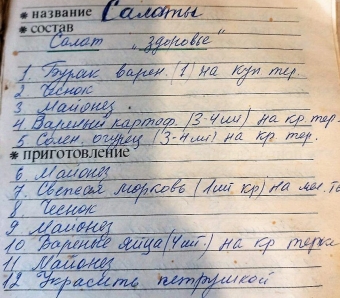 * название Салаты
* состав
Салат „здоровье"
1. Бурак варен. (1) на куп тер.
2 Чеснок
3. Майонез
4. Вареный картоф. (3-4 шт) на кр тер.
5 Солен. огурец (3-4 шт) на кр тер.
* приготовление
6 Майонез
7. Свежая морковь (1 шт кр) на мел. т
8 Чеснок
9 Майонез
10 Вареные яйца (4 шт.) на кр терке
11 Майонез
12 Украсить петрушкой